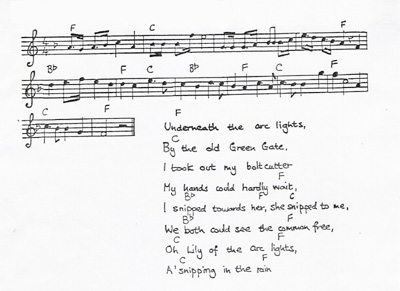 F C F
B♭ F C F B♭ C F
C F
Underneath the arc lights,
C
By the old Green Gate,
I took out my boltcutter
F
My hands could hardly wait,
B♭ F C
I snipped towards her, she snipped to me,
B♭ F
We both could see the common free,
C F
Oh Lily of the arc lights,
C F
A'snipping in the rain